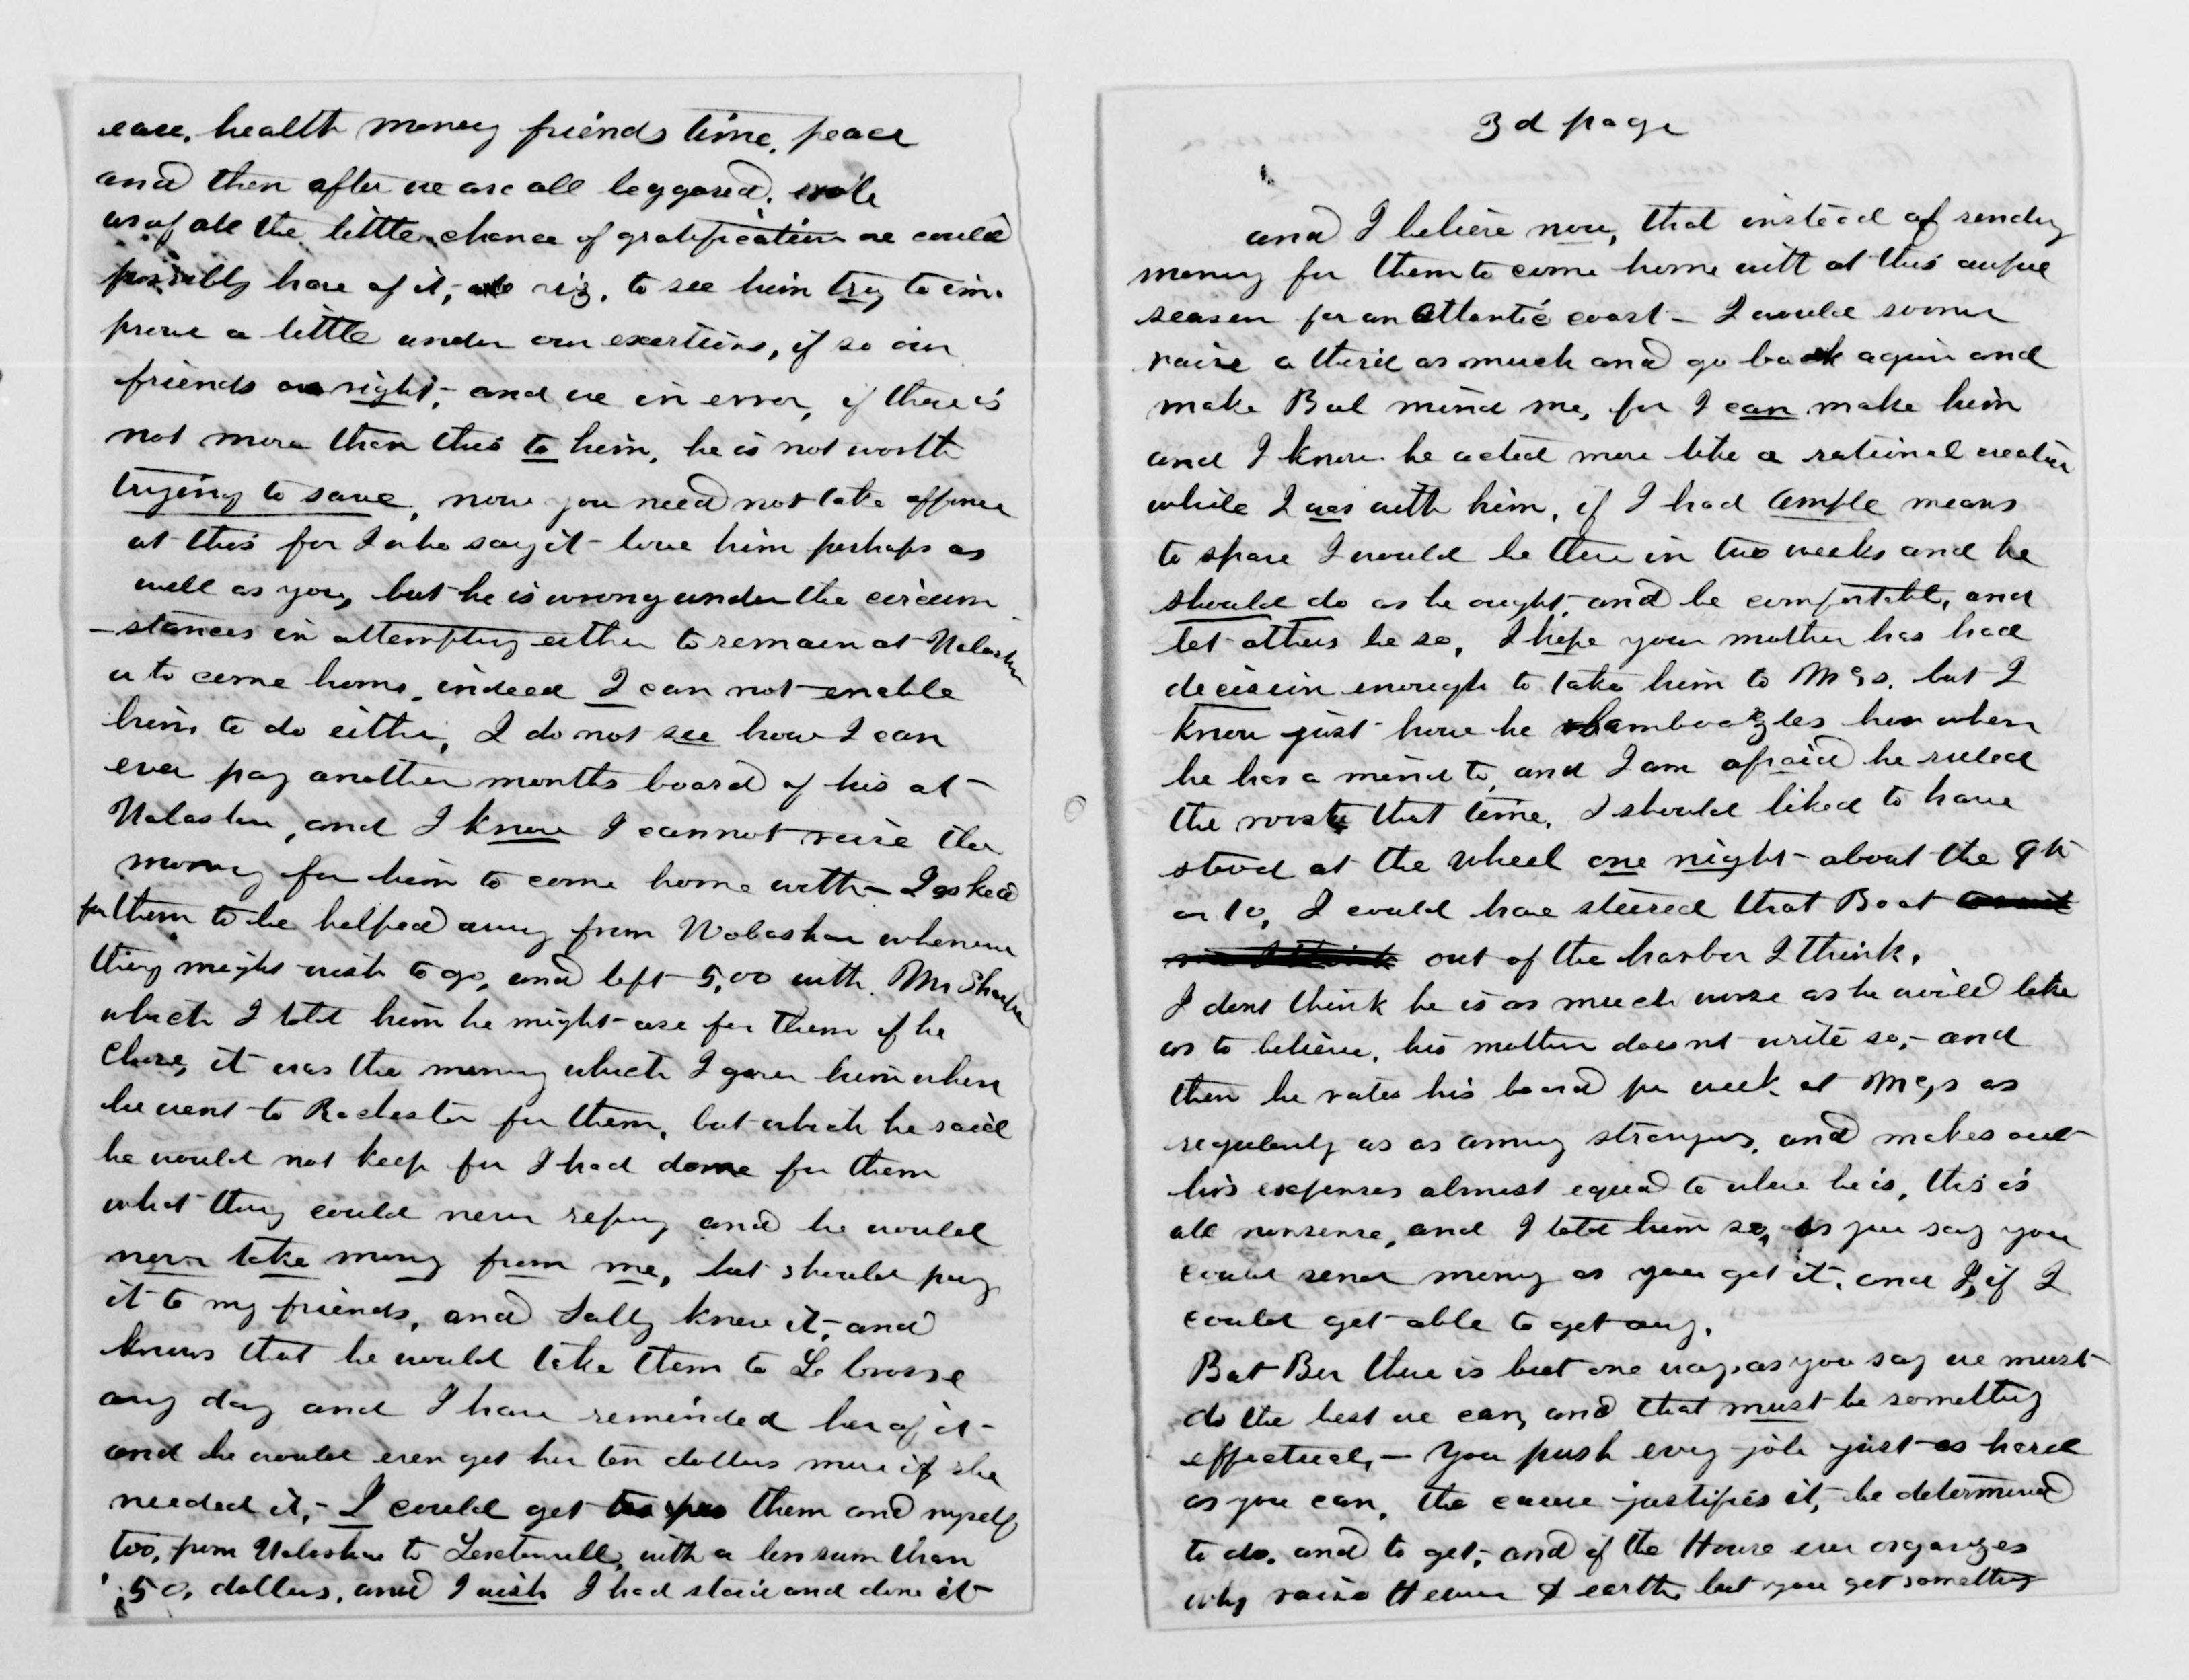 ease, health money friends time, peace
and then after we are all beggared, exile
us of all the little chance of gratification we could
possibly have of it, viz, to see him try to im-
prove a little under our exertions, if so our
friends are right, and we in error, if there is
not more than this to him, he is not worth
trying to save, now you need not take offence
at this for I who say it love him perhaps as
well as you, but he is wrong under the circum
-stances in attempting either to remain at Wabashaw
or to come home, indeed I can not enable
him to do either, I do not see how I can
ever pay another months board of his at
Wabashaw, and I know I cannot raise the
money for him to come home with - I asked
for them to be helped away from Wabashaw whenever
they might wish to go, and left 5,00 with Mr
which I told him he might use for them if he
chose, it was the money which I gave him when
he went to Rochester for them, but which he said
he would not keep for I had done for them
what they could never repay and he would
never take money from me, but should pay
it to my friends, and Sally knew it, and
knows that he would take them to La Crosse
any day and I have reminded her of it -
and he would even get her ten dollars more if she
needed it, - I could get them and myself
too, from Wabashaw to with a less sum than
50, dollars, and I wish I had staid and done it -
3d page
and I believe now, that instead of sending
money for them to come home with at this awful
season for an Atlantic coast - I would sooner
raise a third as much and go back again and
make Bub mind me, for I can make him
and I know he acted more like a rational creature
while I was with him, if I had ample means
to spare I would be there in two weeks and he
should do as he ought, and be comfortable, and
let others be so, I hope your mother has had
decision enough to take him to but I
know just how he bamboozles her when
he has a mind to, and I am afraid he ruled
the roost that time, I should liked to have
stood at the wheel one night - about the 9th
or 10, I could have steered that Boat
out of the harbor I think,
I dont think he is as much worse as he would like
us to believe, his mother does not write so, - and
then he rates his board per week at as
regularly as as among strangers, and makes out
his expenses almost equal to where he is, this is
all nonsense, and I told him so, as you say you
could send money as you get it, and I, if I
could get able to get any,
But Ber there is but one way, as you say we must
do the best we can, and that must be something
effectual, - You push every job just as hard
as you can, the cause justifies it, be determined
to do, and to get, and if the House ever organizes
why raise Heaven & earth, but you get something